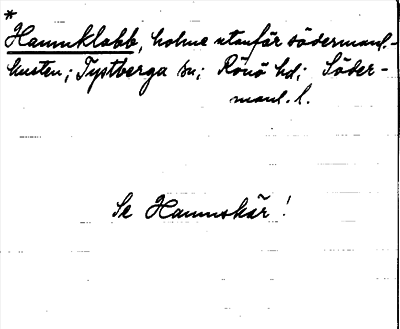 *
Hamnklabb, holme utanför södermanl.-
kusten; Tystberga sn; Rönö hd; Söder-
manl. l.
Se Hamnskär!